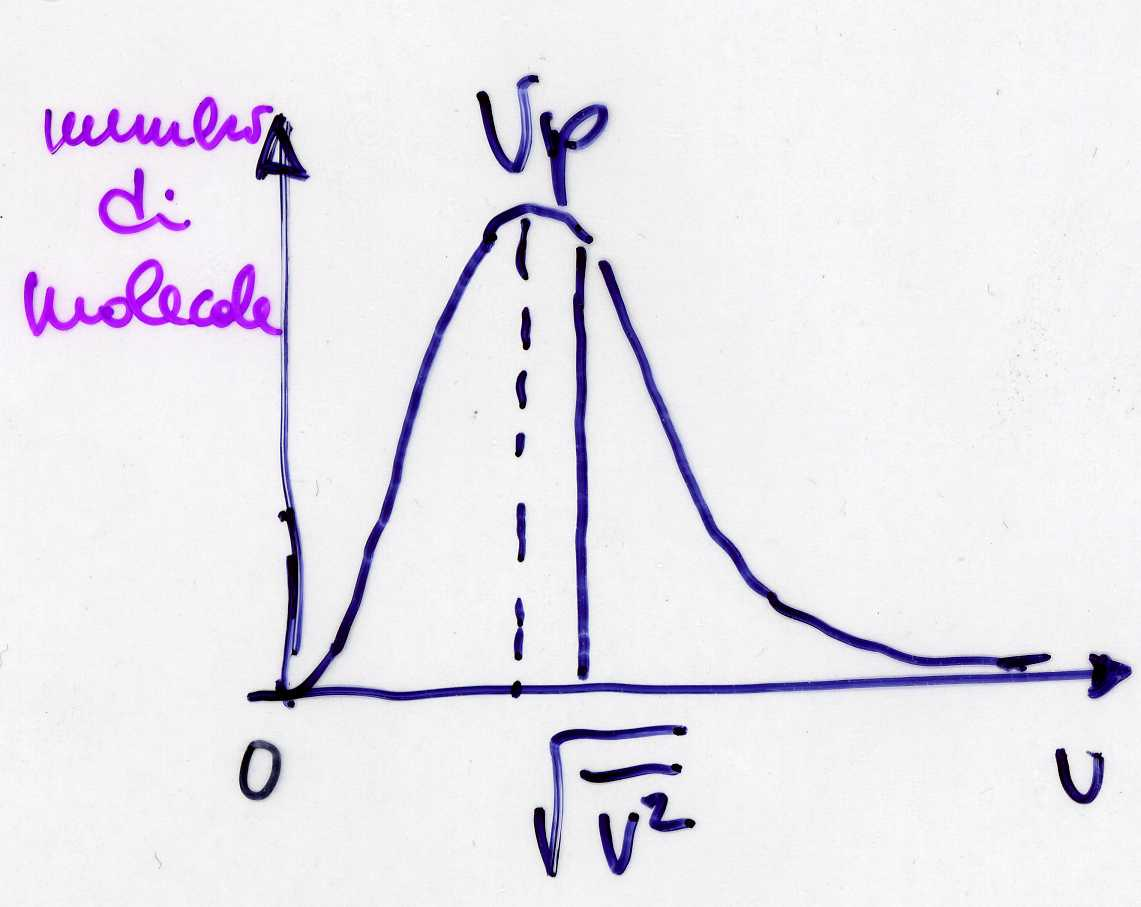 numero
di
molecole
Vp
0
√v̅²
v